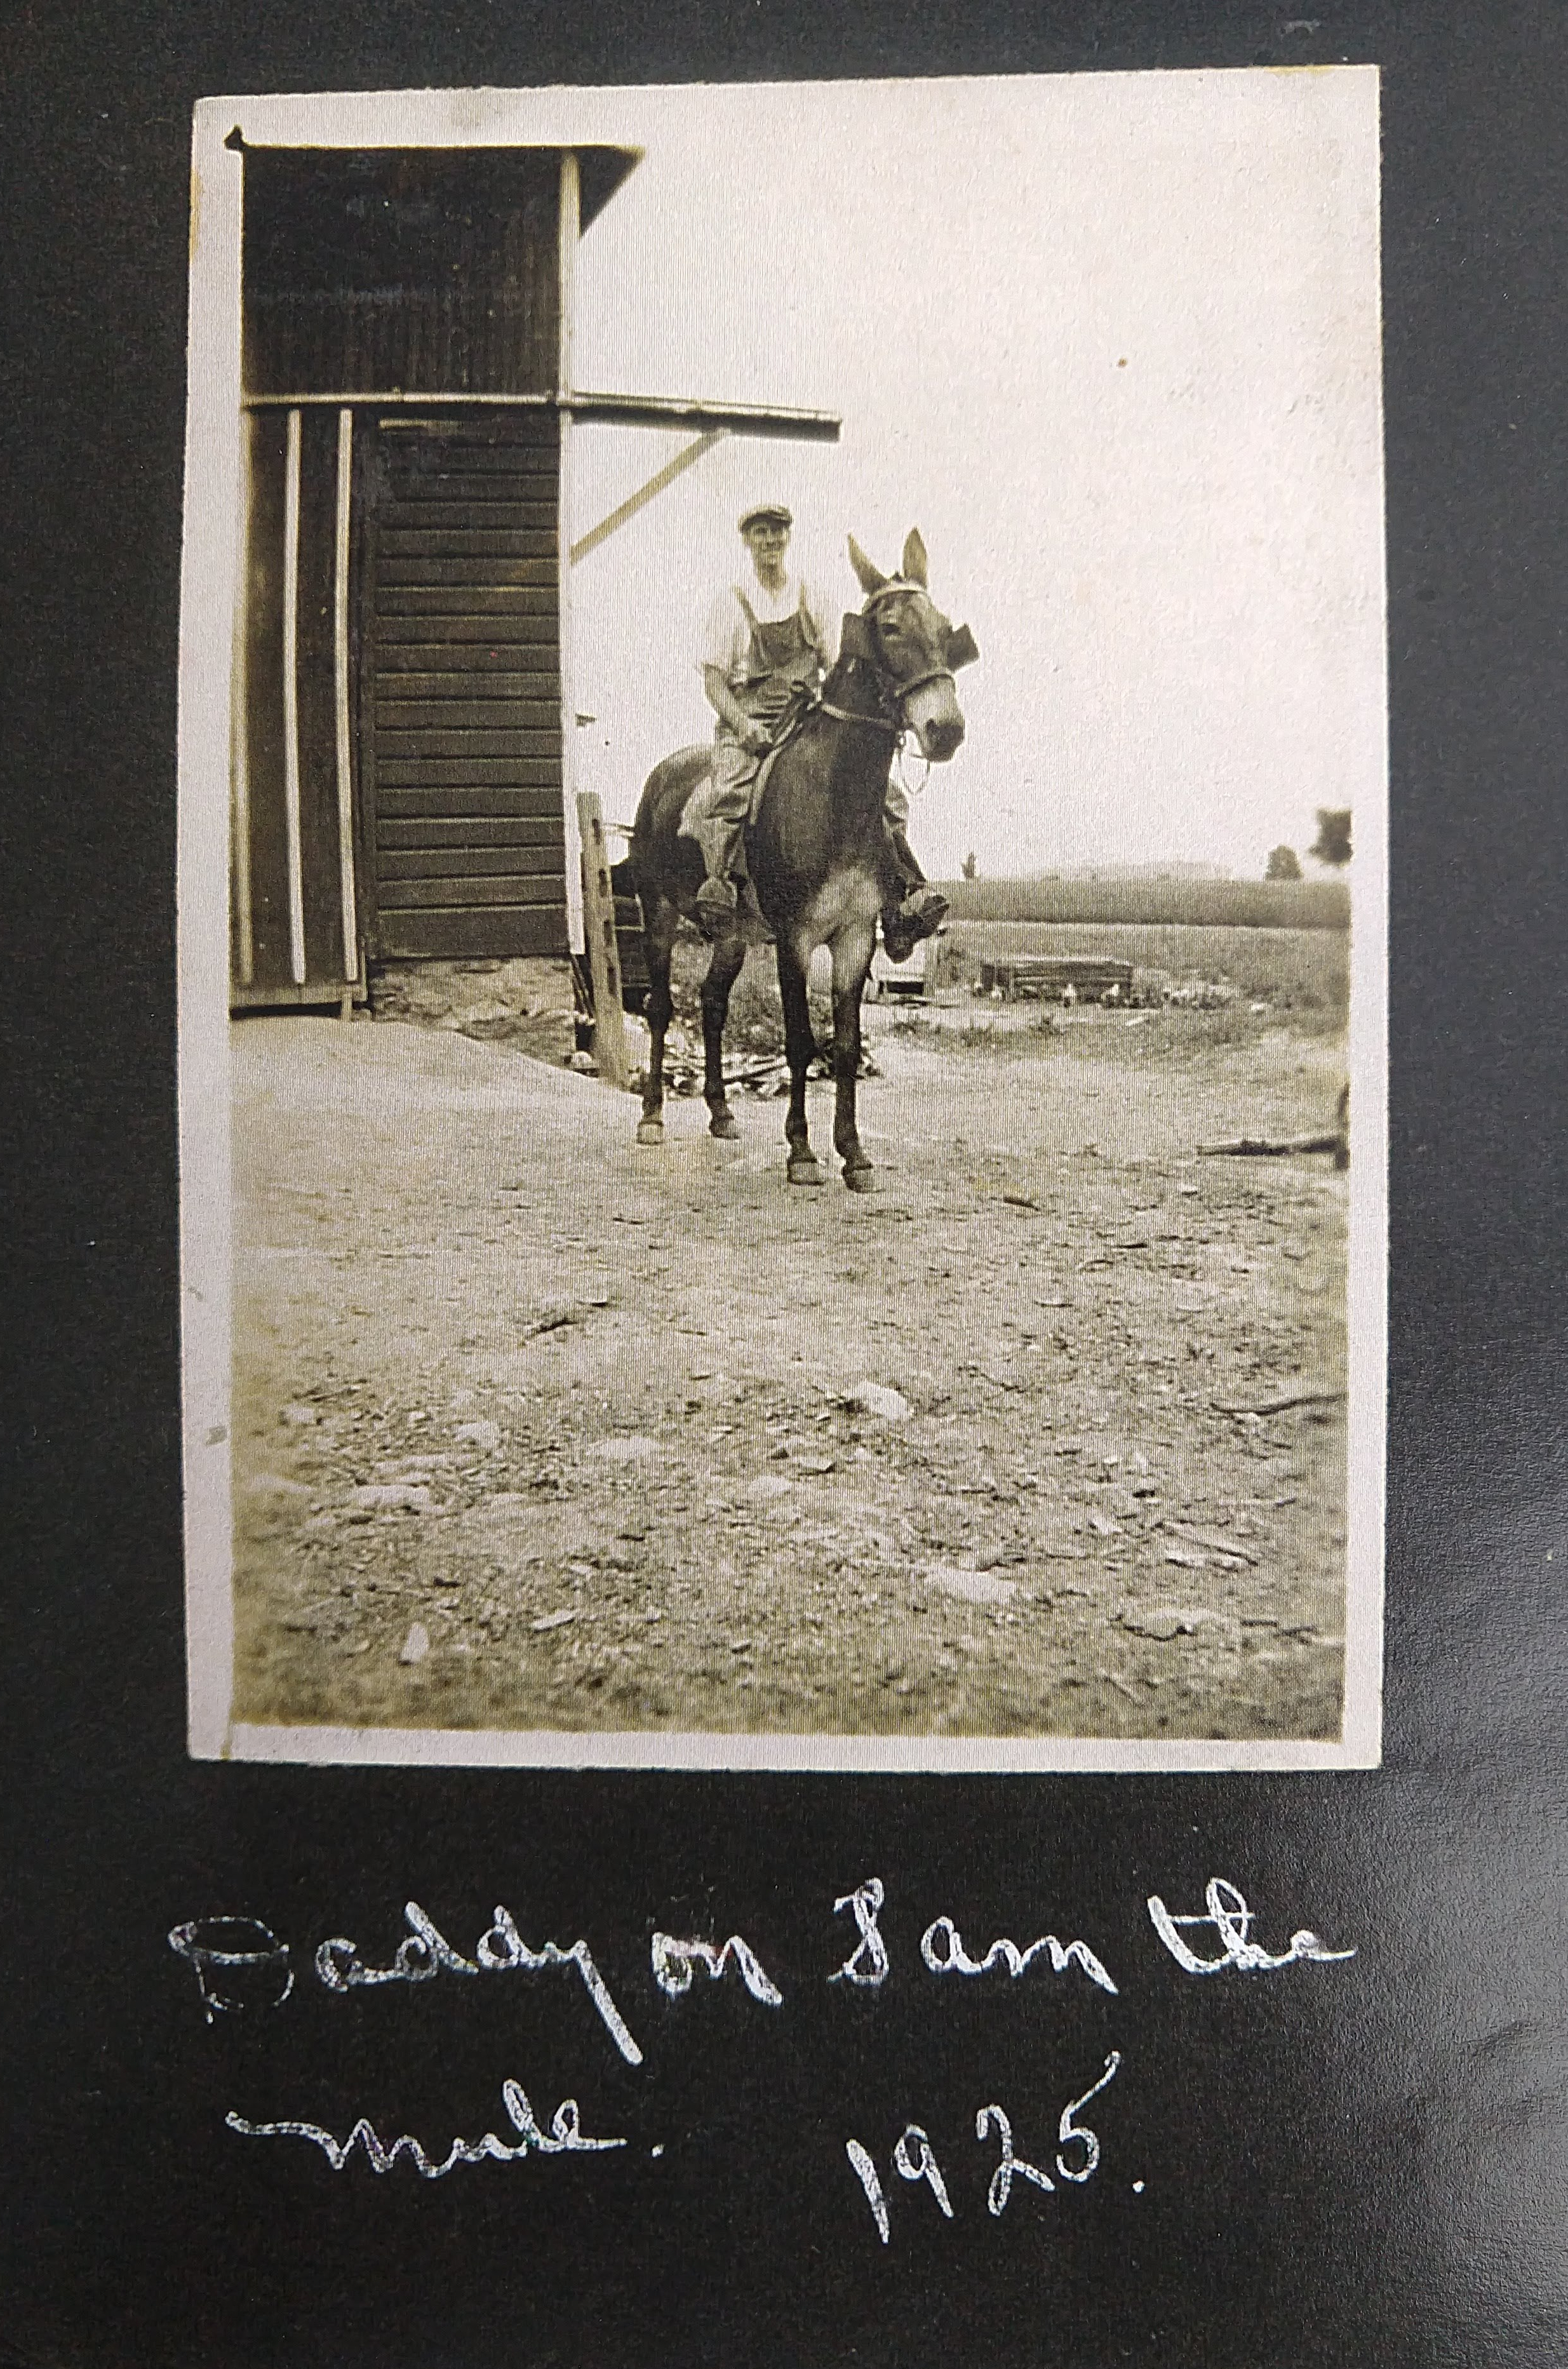 Daddy on Sam the
mule. 1925.